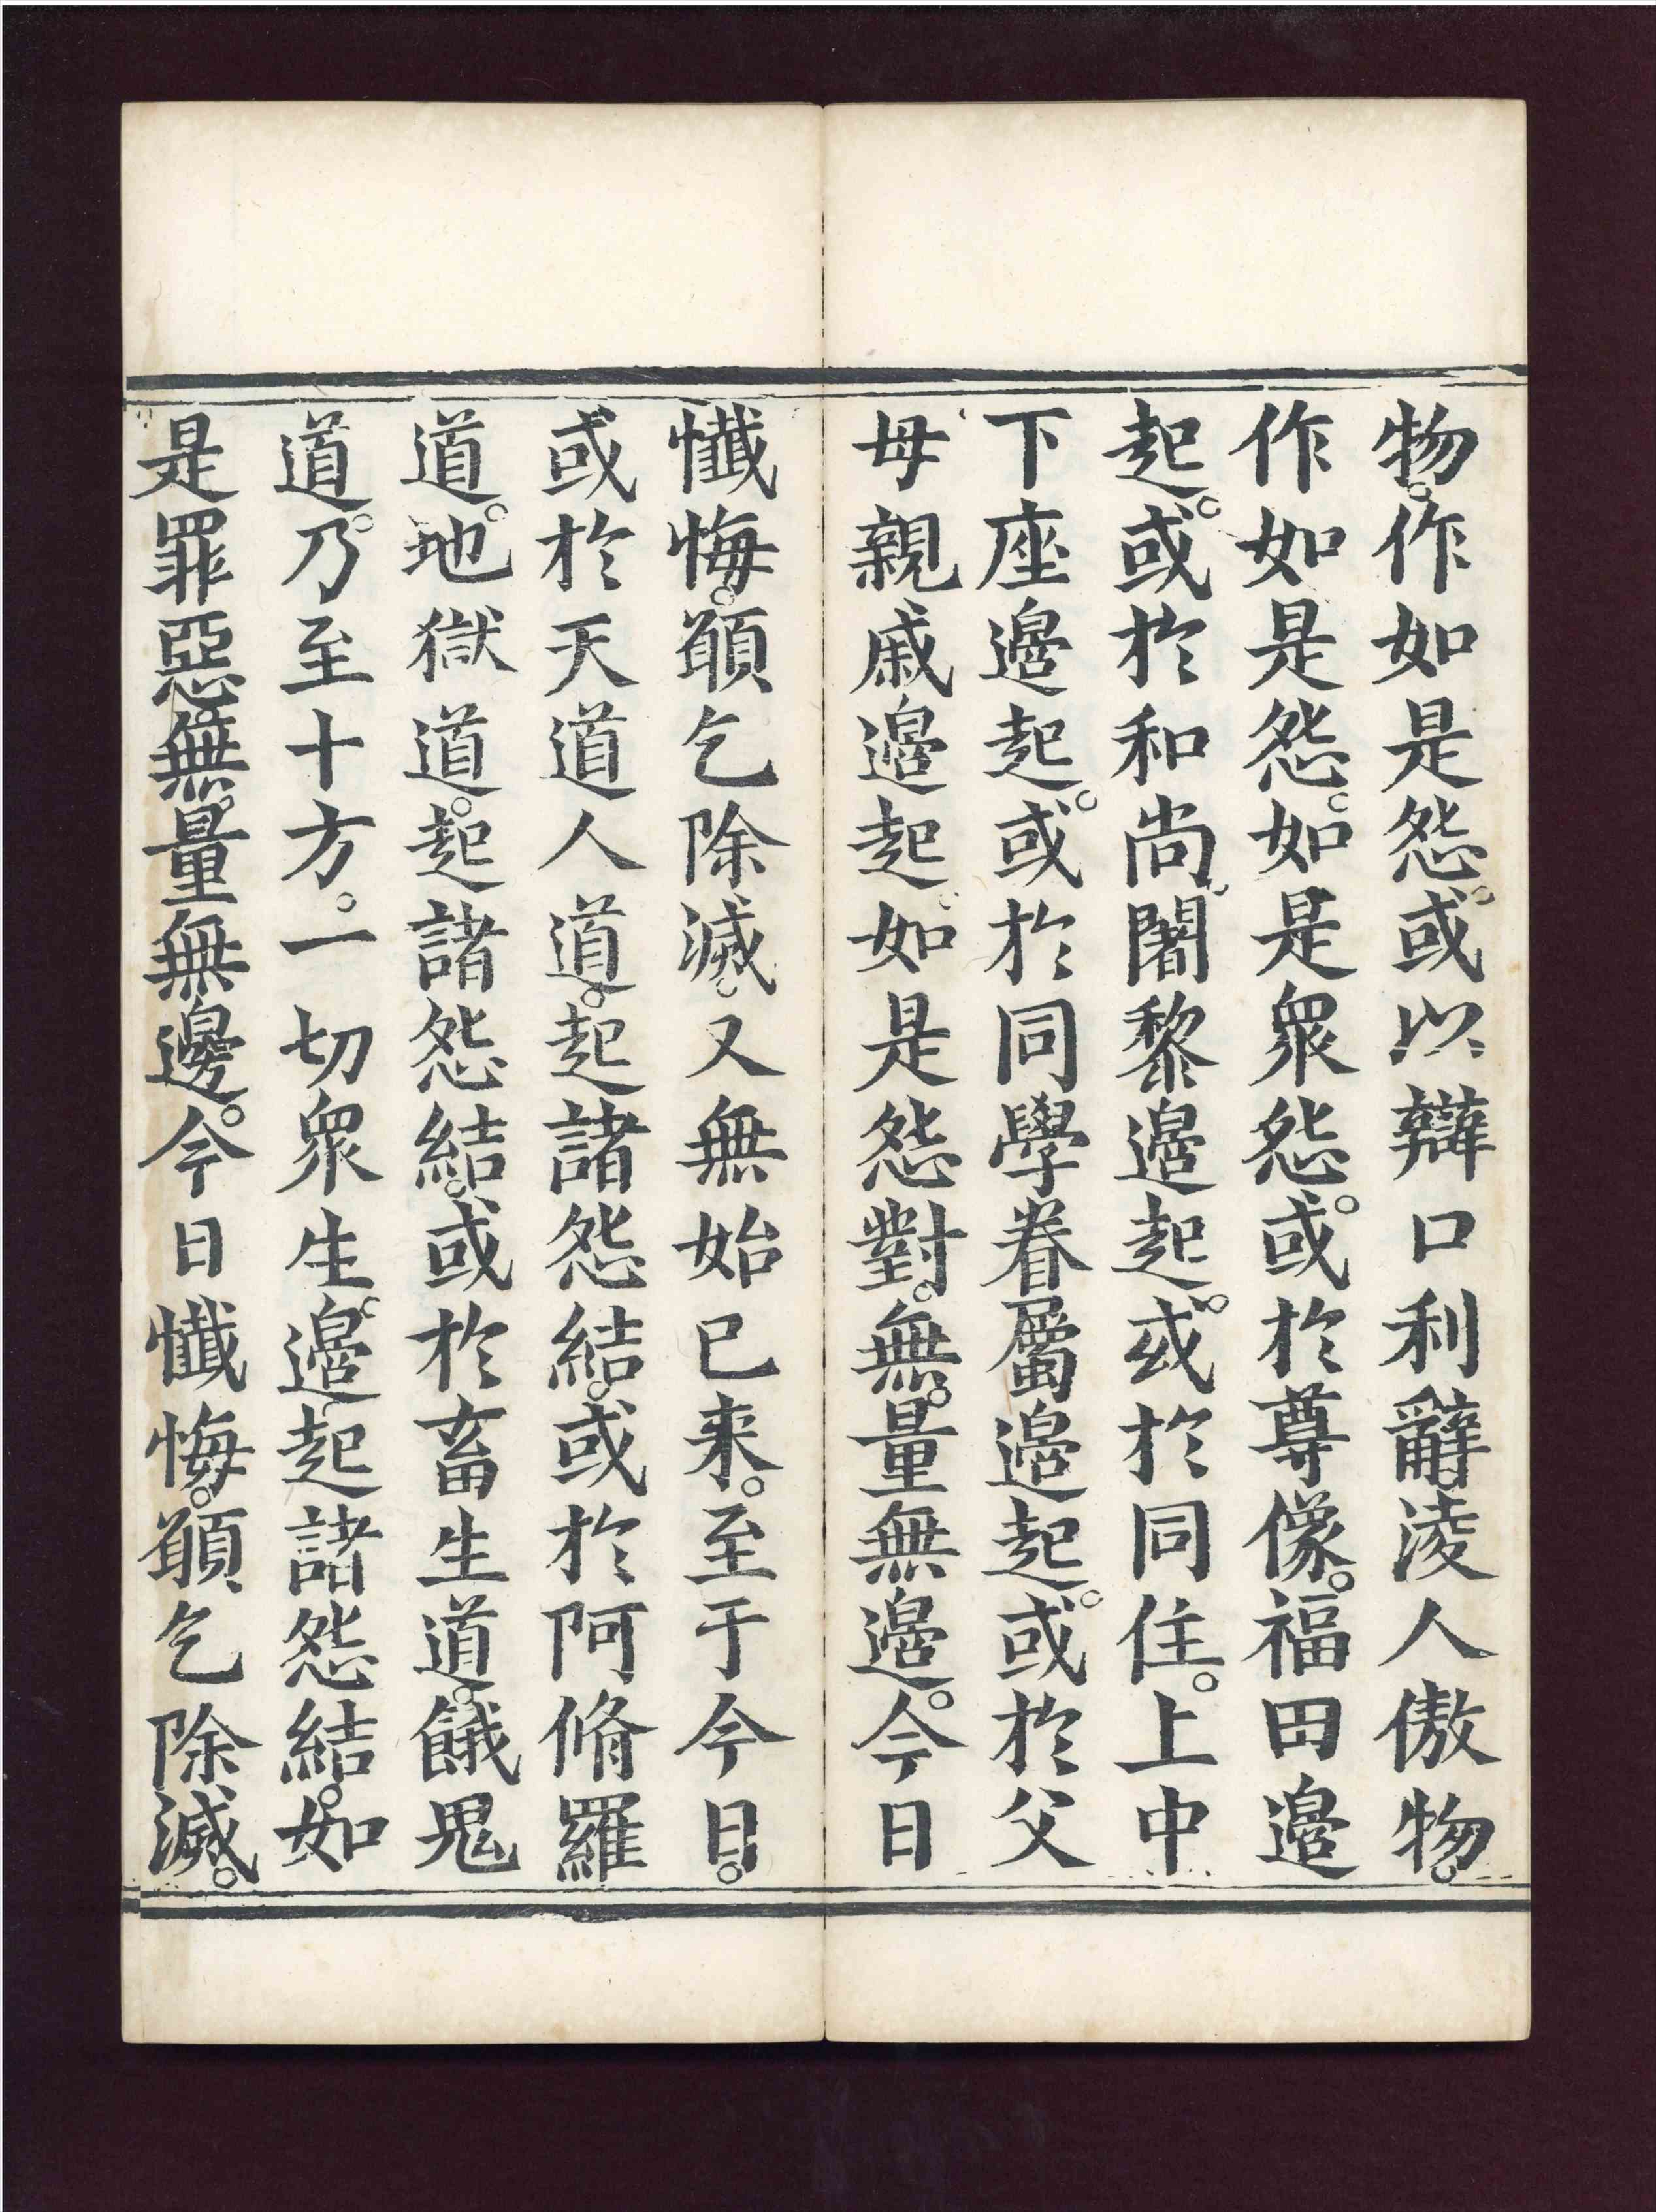 物。作如是怨。或以辯口利辭淩人傲物。
作如是怨。如是眾怨。或於尊像。福田邊
起。或於和尚闍黎邊起。或於同住。上中
下座邊起。或於同學眷屬邊起。或於父
母親戚邊起。如是怨對。無。量無邊。今日
懺悔。願乞除滅。又無始已来。至于今日。
或於天道人道。起諸怨結。或於阿脩羅
道。地獄道。起諸怨結。或於畜生道。餓鬼
道。乃至十方。一切眾生。邊起諸怨結。如
是罪惡無。量無邊。今日懺悔。願乞除滅。